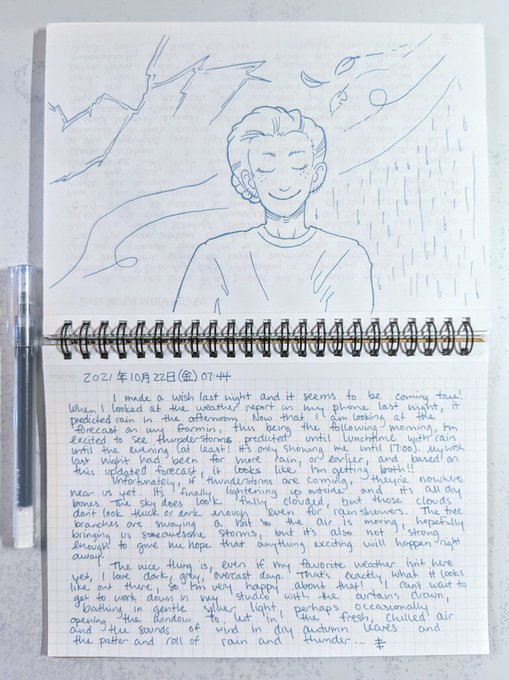 2021年10月22日(金) 07:44
I made a wish last night and it seems to be coming true!
When I looked at the weather report on my phone last night, it
predicted rain in the afternoon. Now that I am looking at the
forecast on my Garmin, this being the following morning, I'm
excited to see thunderstorms predicted until lunchtime with rain
until the evening (at least! It's only showing me until 17:00). My wish
last night had been for more rain, or earlier, and based on
this updated forecast, it looks like I'm getting both!!
Unfortunately, if thunderstorms are coming, they're nowhere
near us yet. It's finally lightening up outside, and it's all dry
bones. The sky does look fully clouded, but those clouds
don't look thick or dark enough even for rain showers. The tree
branches are swaying a bit so the air is moving, hopefully
bringing us some awesome storms, but it's also not strong
enough to give me hope that anything exciting will happen right
away.
The nice thing is, even if my favorite weather isn't here
yet, I love dark, grey, overcast days. That's exactly what it looks
like out there, so I'm very happy about that! I can't want to
get to work down in my studio with the curtains drawn,
bathing in gentle silver light, perhaps occasionally
opening the window to let in the fresh, chilled air
and the sounds of wind in dry autumn leaves and
the patter and roll of rain and thunder...